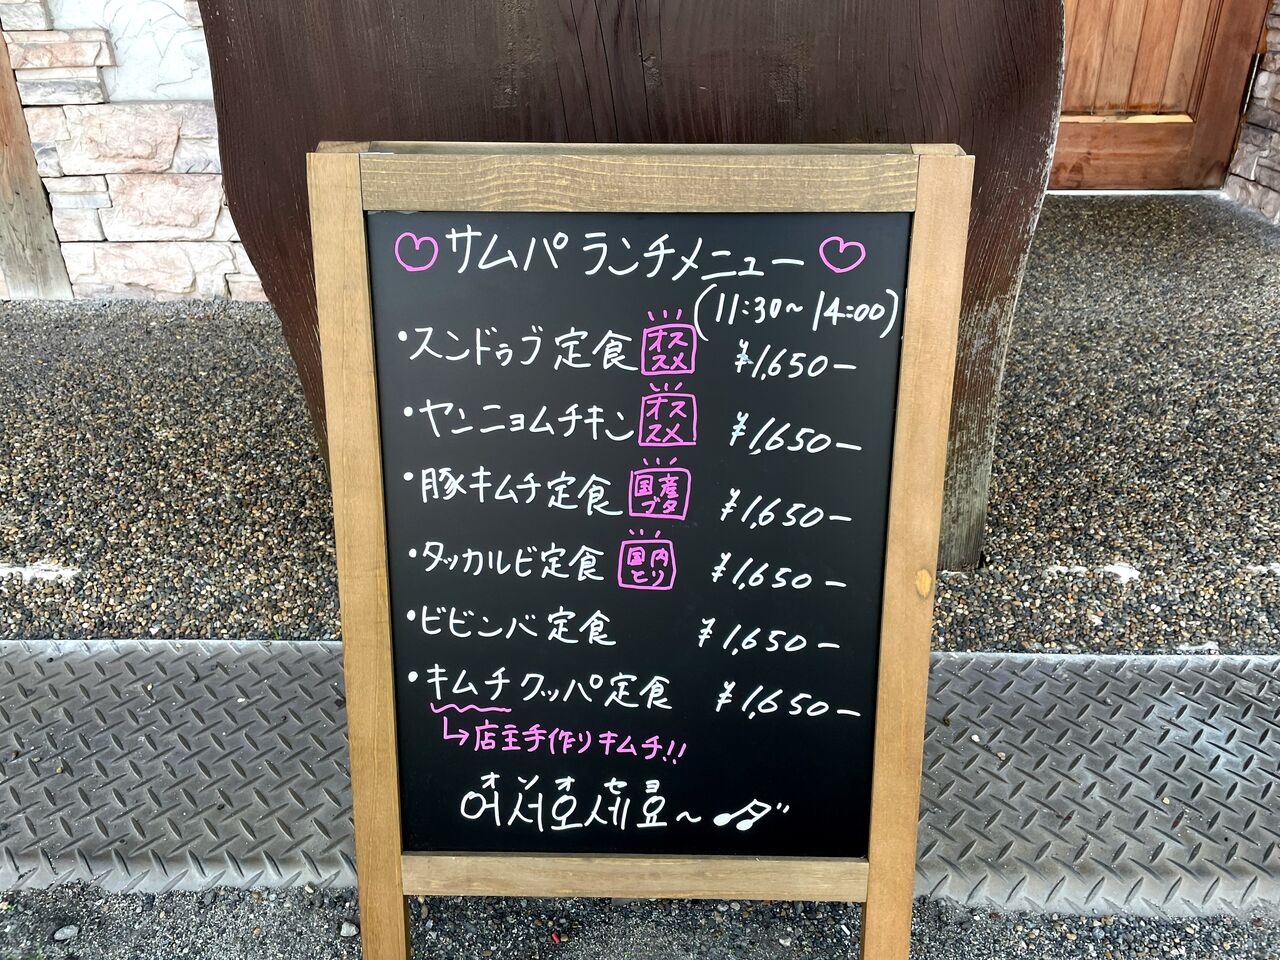 ♡サムパ ランチメニュー♡
(11:30～14:00)
・スンドゥブ定食 オススメ ¥1,650ー
・ヤンニョムチキン オススメ ¥1,650ー
・豚キムチ定食 国産ブタ ¥1,650ー
・タッカルビ定食 国内とり ¥1,650ー
・ビビンバ定食 ¥1,650ー
・キムチクッパ定食 ¥1,650ー
↳店主手作りキムチ!!
オソオセヨ
어서오세요～♫